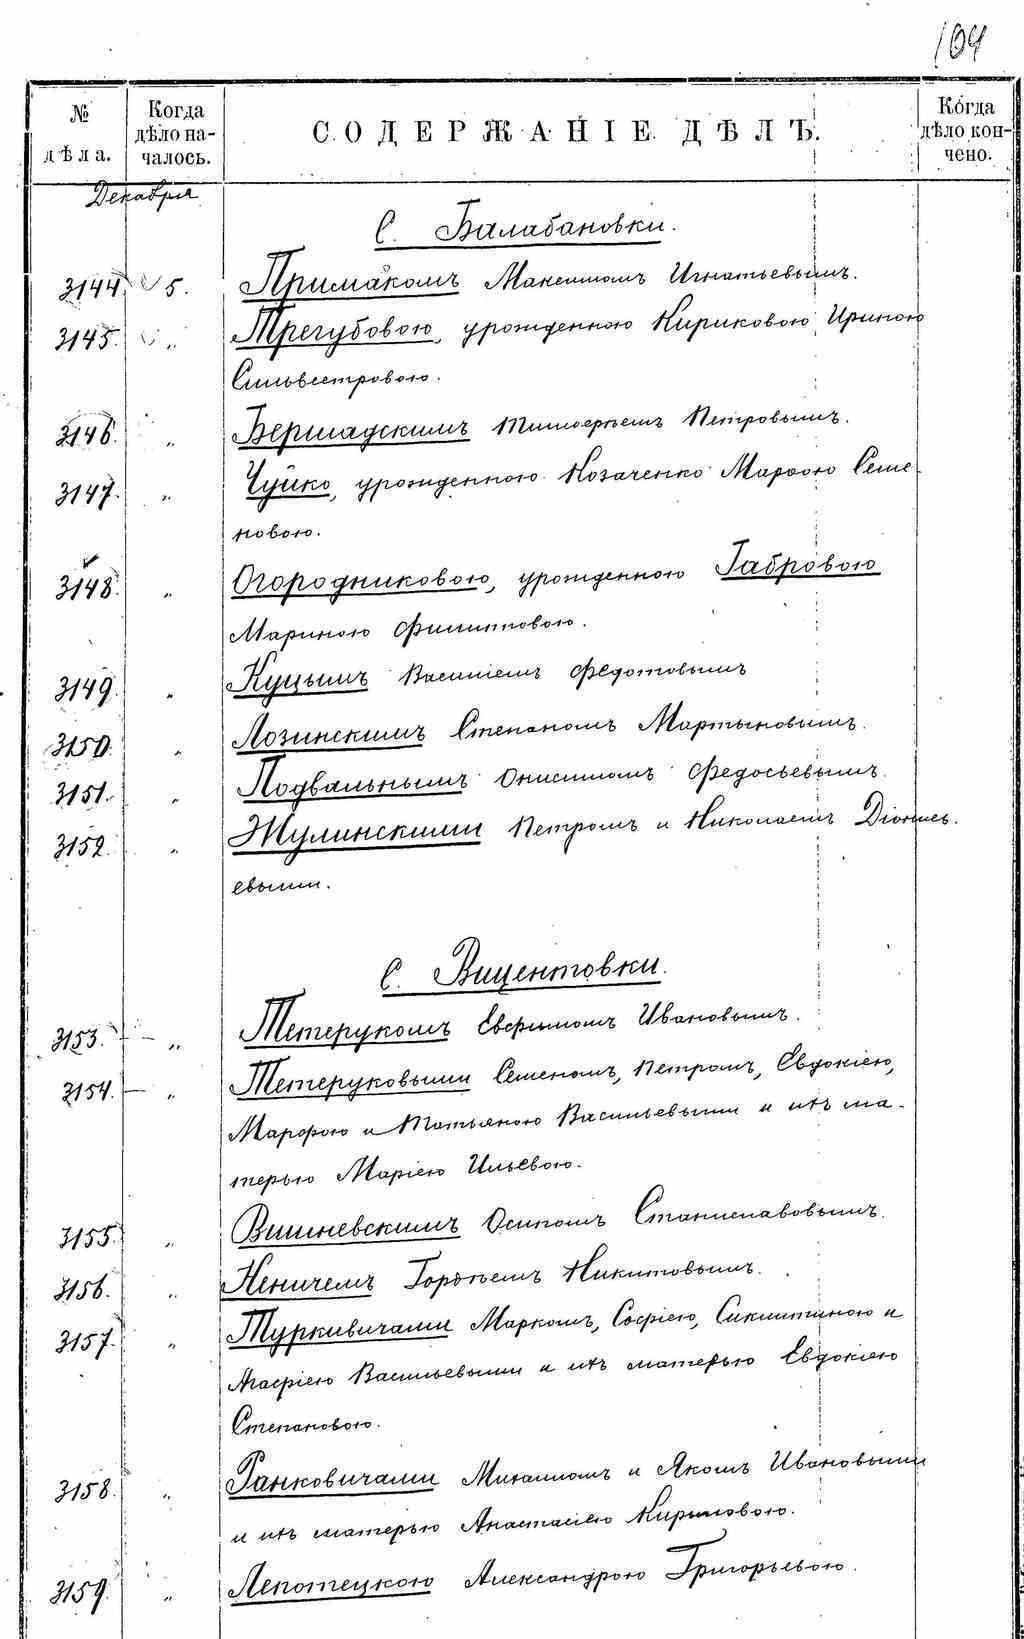 104
№ дѣла. Когда дѣло началось. СОДЕРЖАНІЕ ДѢЛЪ. Когда дѣло кончено.
Декабря
С. Балабановки.
3144. 5. Примакомъ Максимомъ Игнатьевымъ.
3145. „ Трегубовою, урожденною Кириковою Ириною
Сильвестровою.
3146. „ Бершадскимъ Тимоѳеемъ Петровымъ.
3147. „ Чуйко, урожденною Козаченко Марѳою Семе-
новою.
3148. „ Огородниковою, урожденною Габровою
Мариною Филипповою.
3149. „ Куцымъ Василіемъ Федотовымъ
3150. „ Лозинскимъ Степаномъ Мартыновымъ.
3151. „ Подвальнымъ Онисимомъ Федосьевымъ.
3152. „ Жулинскими Петромъ и Николаемъ Діонис-
евыми.
С. Вицентовки.
3153. „ Тетерукомъ Евфимомъ Ивановымъ.
3154. „ Тетеруковыми Семеномъ, Петромъ, Евдокіею,
Марфою и Татьяною Васильевыми и ихъ ма-
терью Маріею Ильевою.
3155. „ Вишневскимъ Осипомъ Станиславовымъ.
3156. „ Неничемъ Гордѣемъ Никитовымъ.
3157. „ Туркивичами Маркомъ, Софіею, Сиклитиною и
Агафіею Васильевыми и ихъ матерью Евдокіею
Степановою.
3158. „ Ранковичами Михаиломъ и Яковомъ Ивановыми
и ихъ матерью Анастасіею Кириловою.
3159. „ Лепотецкою Александрою Григорьевою.